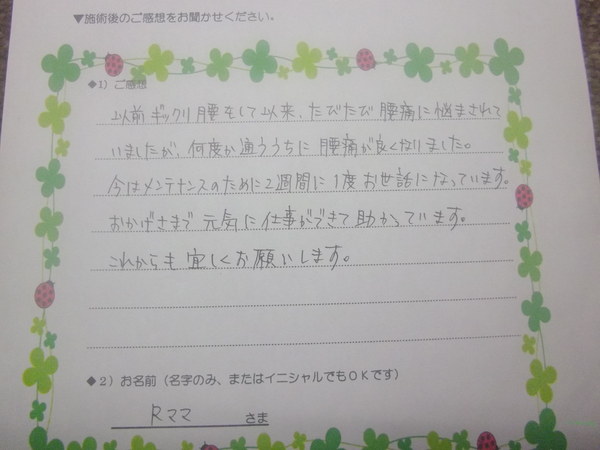 ▼施術後のご感想をお聞かせください。
◆1）ご感想
以前ギックリ腰をして以来、たびたび腰痛に悩まされて
いましたが、何度か通ううちに腰痛が良くなりました。
今はメンテナンスのために2週間に1度お世話になっています。
おかげさまで元気に仕事ができて助かっています。
これからも宜しくお願いします。
◆2）お名前（名字のみ、またはイニシャルでもOKです）
Rママ さま